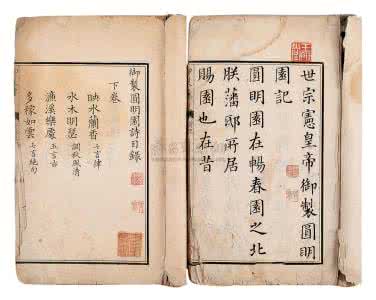 世宗憲皇帝御製圓明
園記
圓明園在暢春園之北
朕藩邸所居
賜園也在昔
御製圓明園詩目錄
下卷
映水蘭香 五言律
水木明瑟 調秋風清
濂溪樂處 五言古
多稼如雲 五言絶句